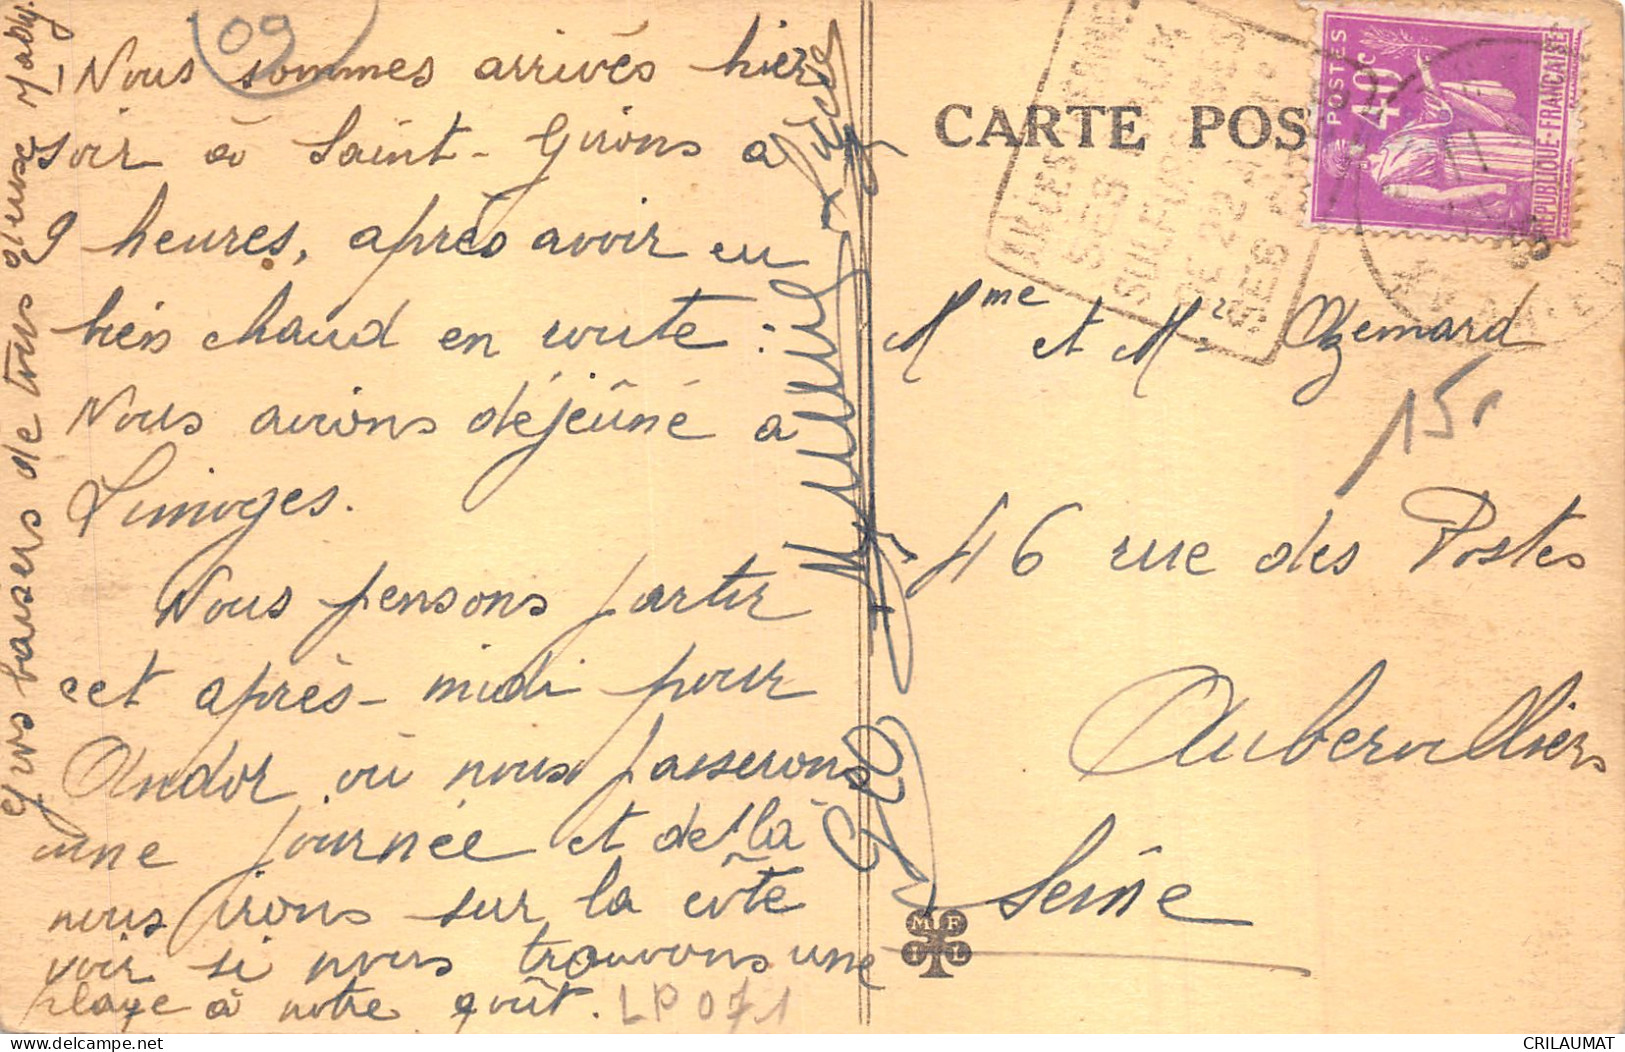 09
Nous sommes arrivés hier
soir à Saint-Girons à
9 heures, après avoir eu
bien chaud en route :
Nous avions déjeûné à
Limoges.
Nous pensons partir
cet après-midi pour
Andor où nous passerons
une journée et de là
nous irons sur la côte
voir si nous trouvons une
plage à notre goût.
LP 071
Gros baisers de tous
Mably.
Geo
CARTE POS
POSTES
40c
REPUBLIQUE-FRANÇAISE
SES
SULFUREUSES
DE 22 A
SES
Mme et Mr Ozemard
15
46 rue des Postes
Aubervilliers
Seine
M F
I L
CRILAUMAT